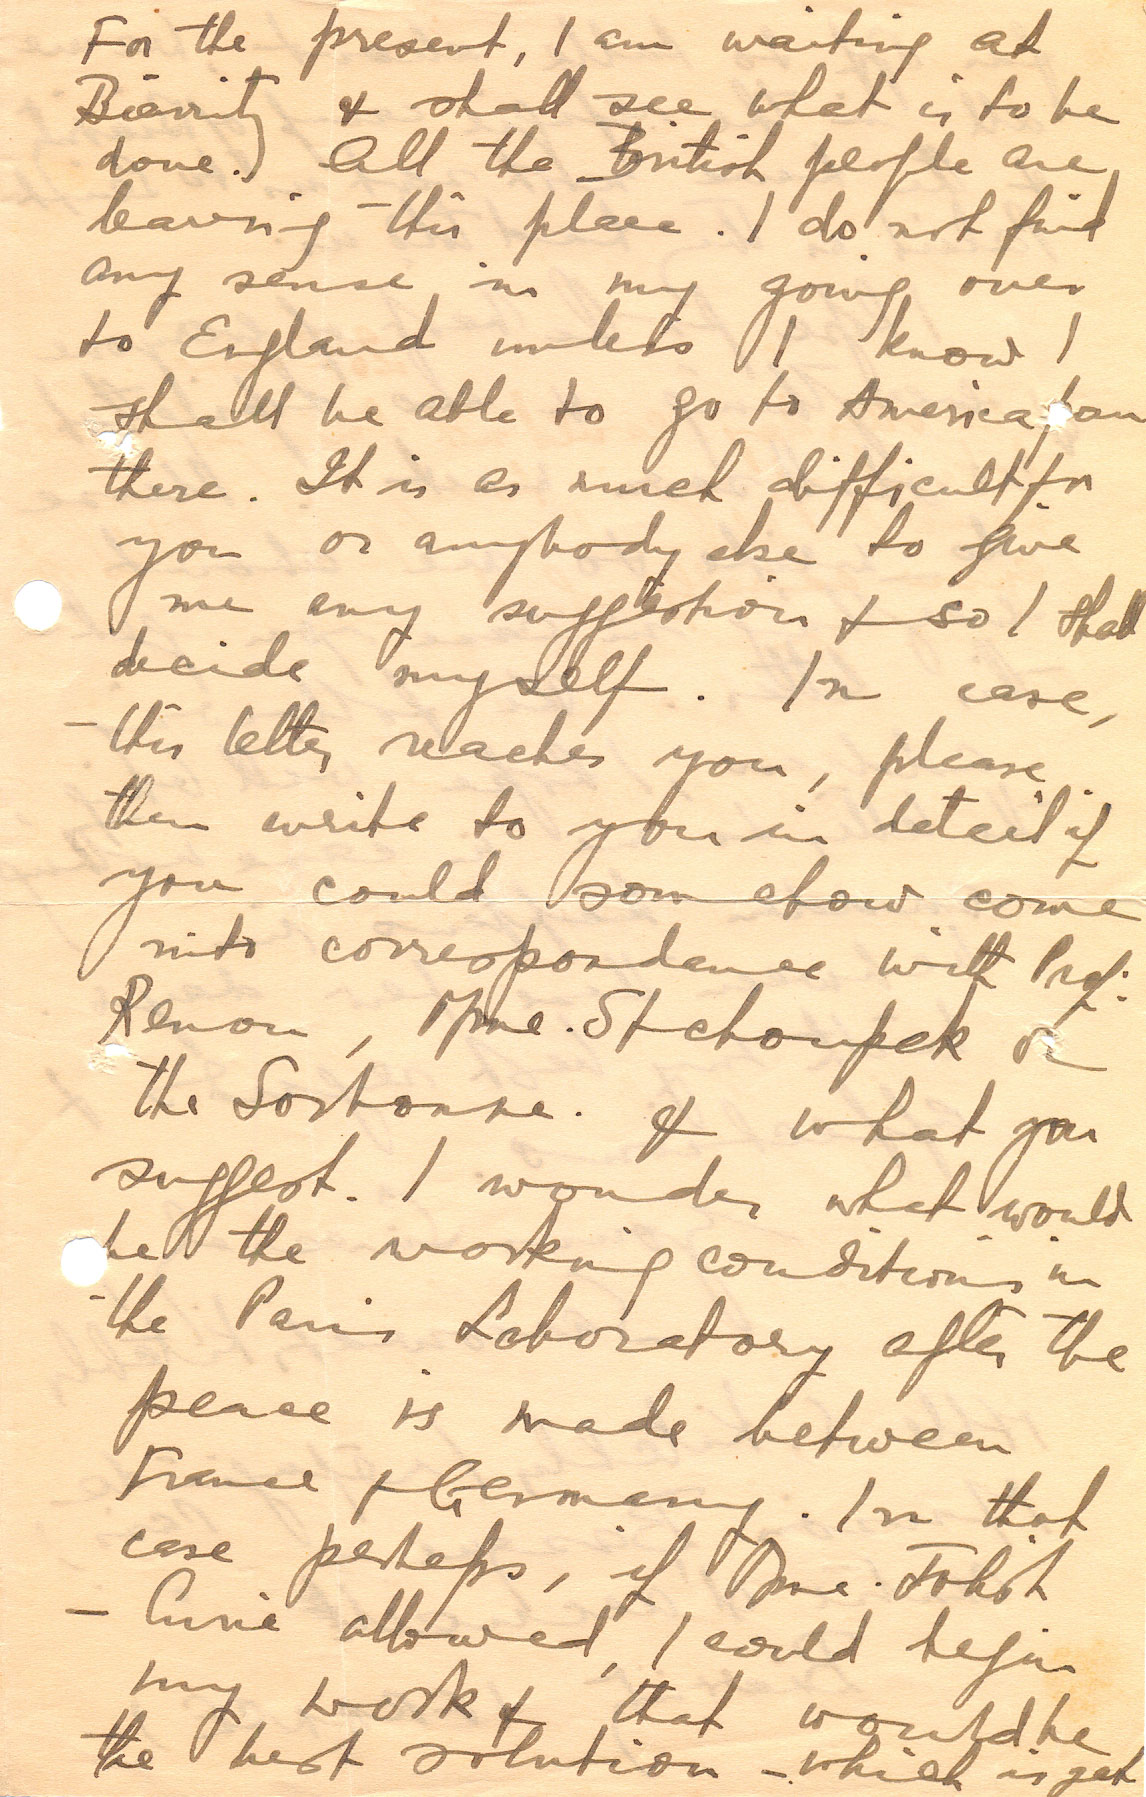 For the present, I am waiting at
Biarritz & shall see what is to be
done.) All the British people are
leaving this place. I do not find
any sense in my going over
to England unless I know I
shall be able to go to America from
there. It is as much difficult for
you or anybody else to give
me any suggestion & so I shall
decide myself. In case,
this letter reaches you, please
then write to you in detail if
you could somehow come
into correspondance with Prof.
Renou, Mme. Stchoupak or
the Sorbonne. & what you
suggest. I wonder what would
be the working conditions in
the Paris Laboratory after the
peace is made between
France & Germany. In that
case perhaps, if Mme. Joliot
- Curie allowed, I could begin
my work & that would be
the best solution - which is yet